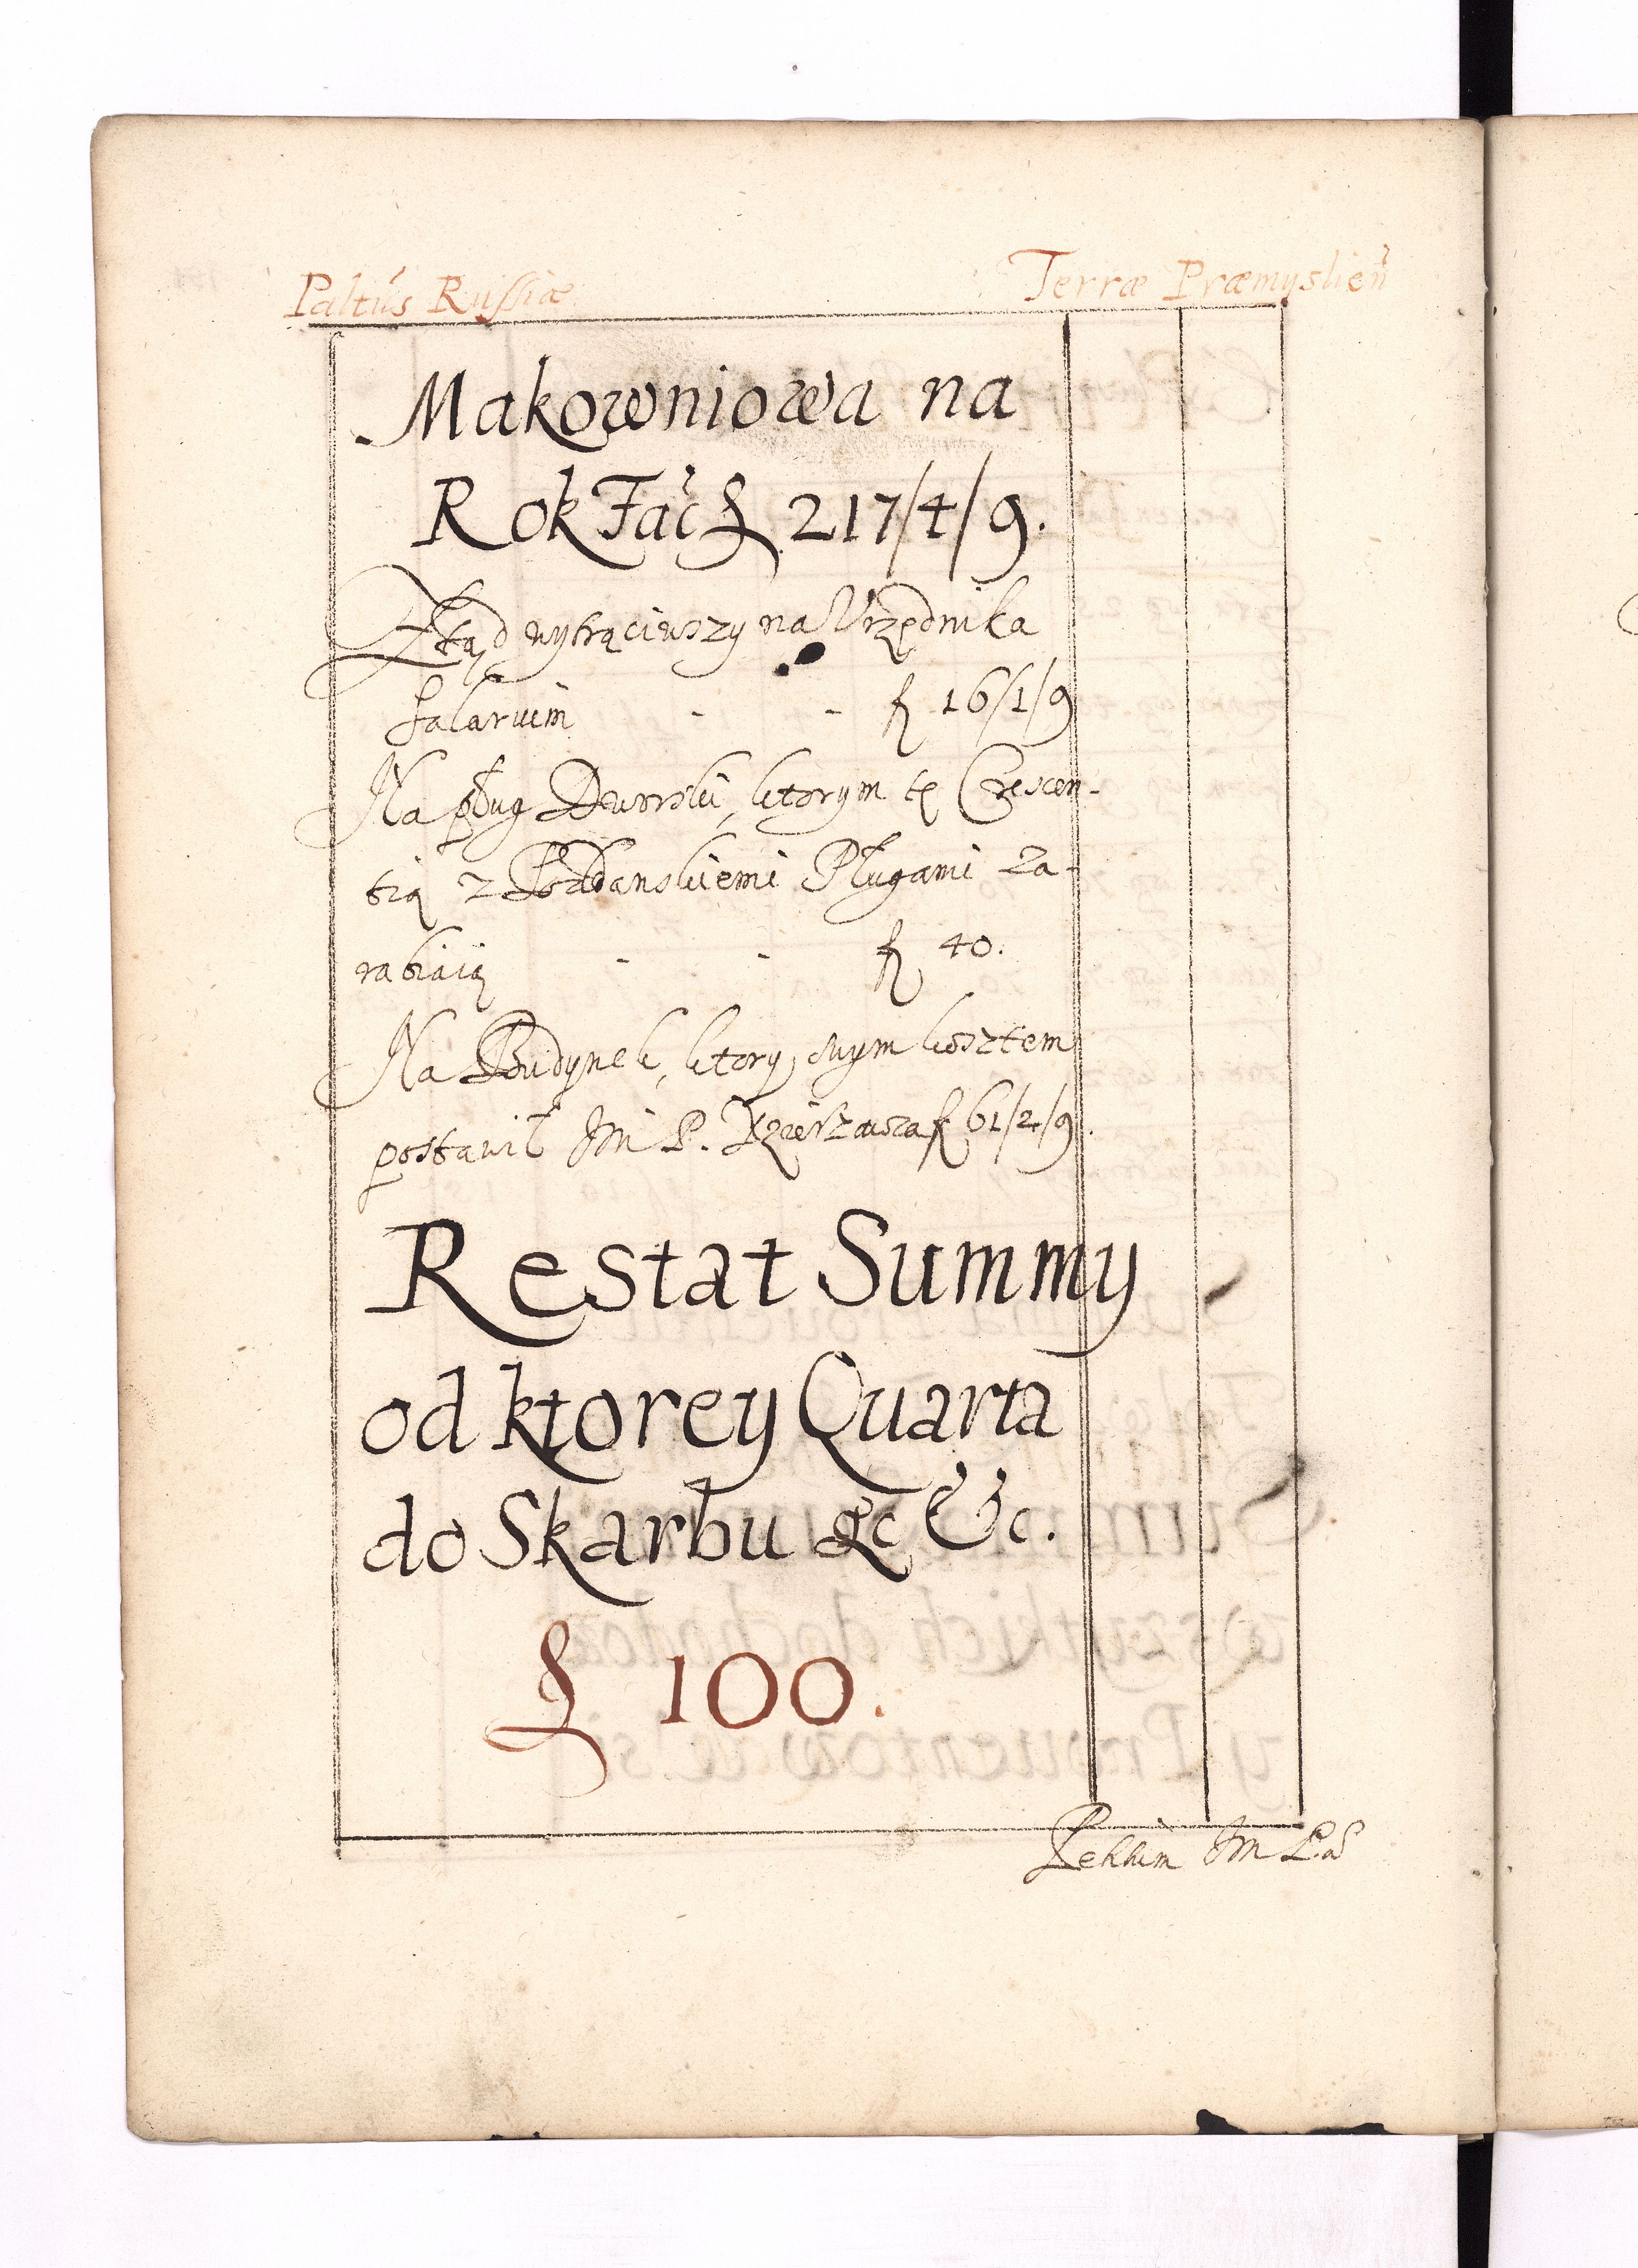 Paltus Russiæ Terræ Præmyslien
Makowniowa na
Rok Fac fl 217/4/9.
Ztąd wytrąciwszy na Vrzędnika
salarium - - fl 16/1/9
Na pług Dworski, ktorym tę Crescen-
tią z Poddanskiemi Pługami za-
rabiaią - - fl 40.
Na Budynek, ktory swym kosztem
postawił Jm P. fl 61/2/9.
Restat Summy
od ktorey Quarta
do Skarbu &c &c.
fl 100.
Jm